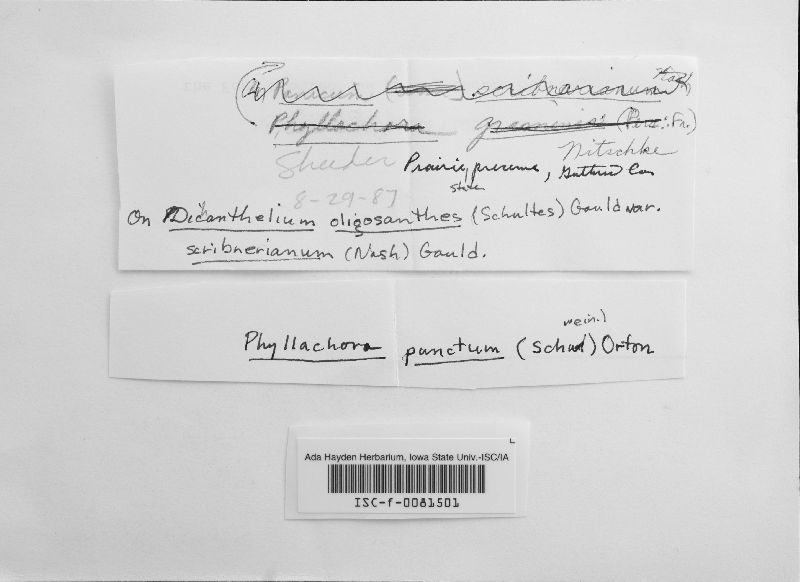 On Panicum scribnerianum Nash
Phyllachora graminis (Pers.:Fr.)
Nitschke
Sheeder Prairie preserve, Guthrie Co
State
8-29-87
On Dichanthelium oligosanthes (Schultes) Gould var.
scribnerianum (Nash) Gould.
wein.)
Phyllachora punctum (Schw) Orton
Ada Hayden Herbarium, Iowa State Univ.-ISC/IA
ISC-f-0081501